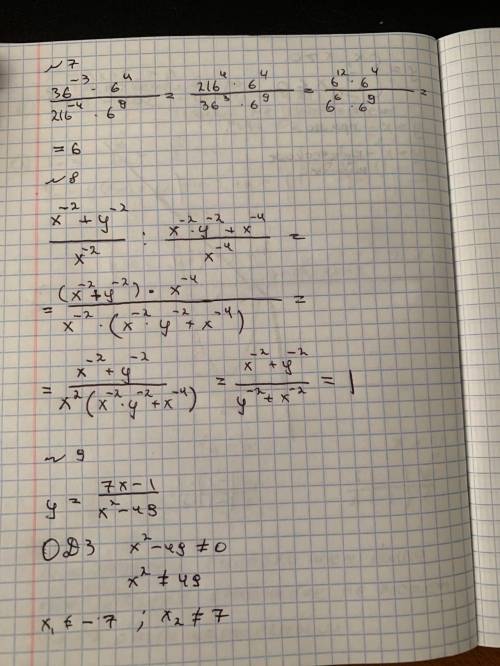 №7
36⁻³ · 6⁴ / 216⁻⁴ · 6⁹ = 216⁴ · 6⁴ / 36³ · 6⁹ = 6¹² · 6⁴ / 6⁶ · 6⁹ =
= 6
№8
x⁻² + y⁻² / x⁻² : x⁻² · y⁻² + x⁻⁴ / x⁻⁴ =
= (x⁻² + y⁻²) · x⁻⁴ / x⁻² · (x⁻² · y⁻² + x⁻⁴) =
= x⁻² + y⁻² / x² (x⁻² · y⁻² + x⁻⁴) = x⁻² + y⁻² / y⁻² + x⁻² = 1
№9
y = 7x − 1 / x² − 49
ОДЗ x² − 49 ≠ 0
x² ≠ 49
x₁ ≠ −7 ; x₂ ≠ 7